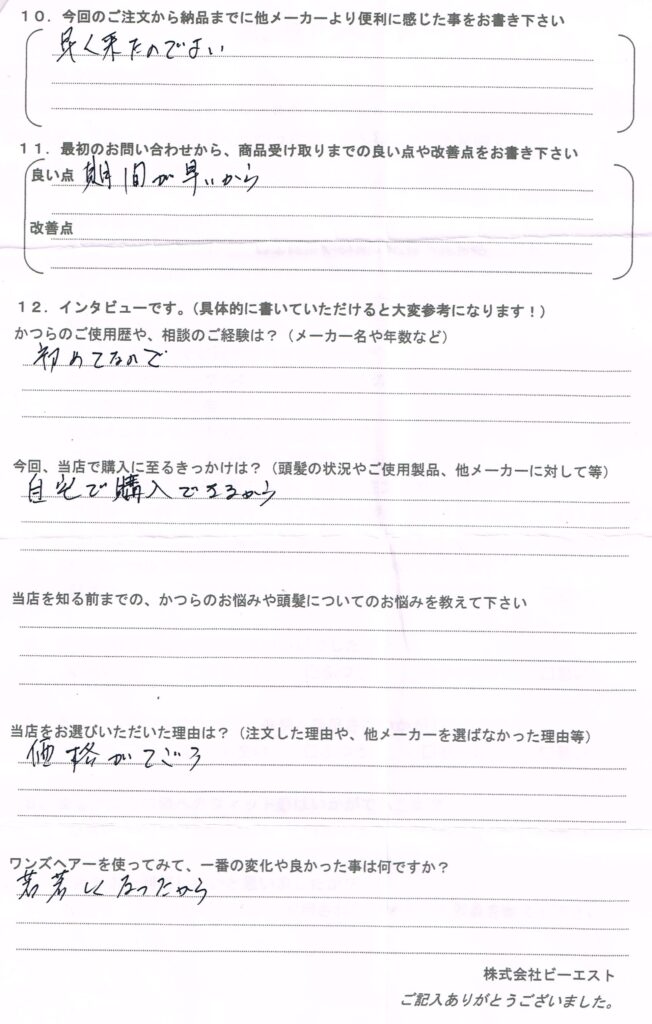 １０．今回のご注文から納品までに他メーカーより便利に感じた事をお書き下さい
早く来たのでよい
１１．最初のお問い合わせから、商品受け取りまでの良い点や改善点をお書き下さい
良い点 期間が早いから
改善点
１２．インタビューです。（具体的に書いていただけると大変参考になります！）
かつらのご使用歴や、相談のご経験は？（メーカー名や年数など）
初めてなので
今回、当店で購入に至るきっかけは？（頭髪の状況やご使用製品、他メーカーに対して等）
自宅で購入できるから
当店を知る前までの、かつらのお悩みや頭髪についてのお悩みを教えて下さい
当店をお選びいただいた理由は？（注文した理由や、他メーカーを選ばなかった理由等）
価格がてごろ
ワンズヘアーを使ってみて、一番の変化や良かった事は何ですか？
若若しくなったから
株式会社ビーエスト
ご記入ありがとうございました。